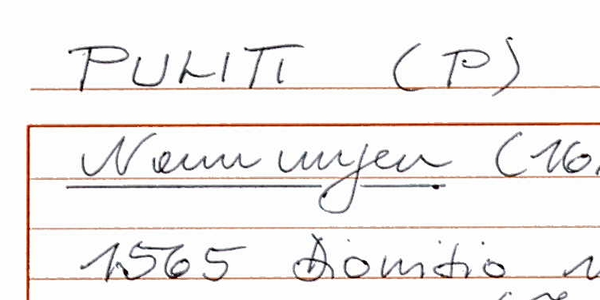 PULITI (P)
Nennungen (16
1565 Dionitio